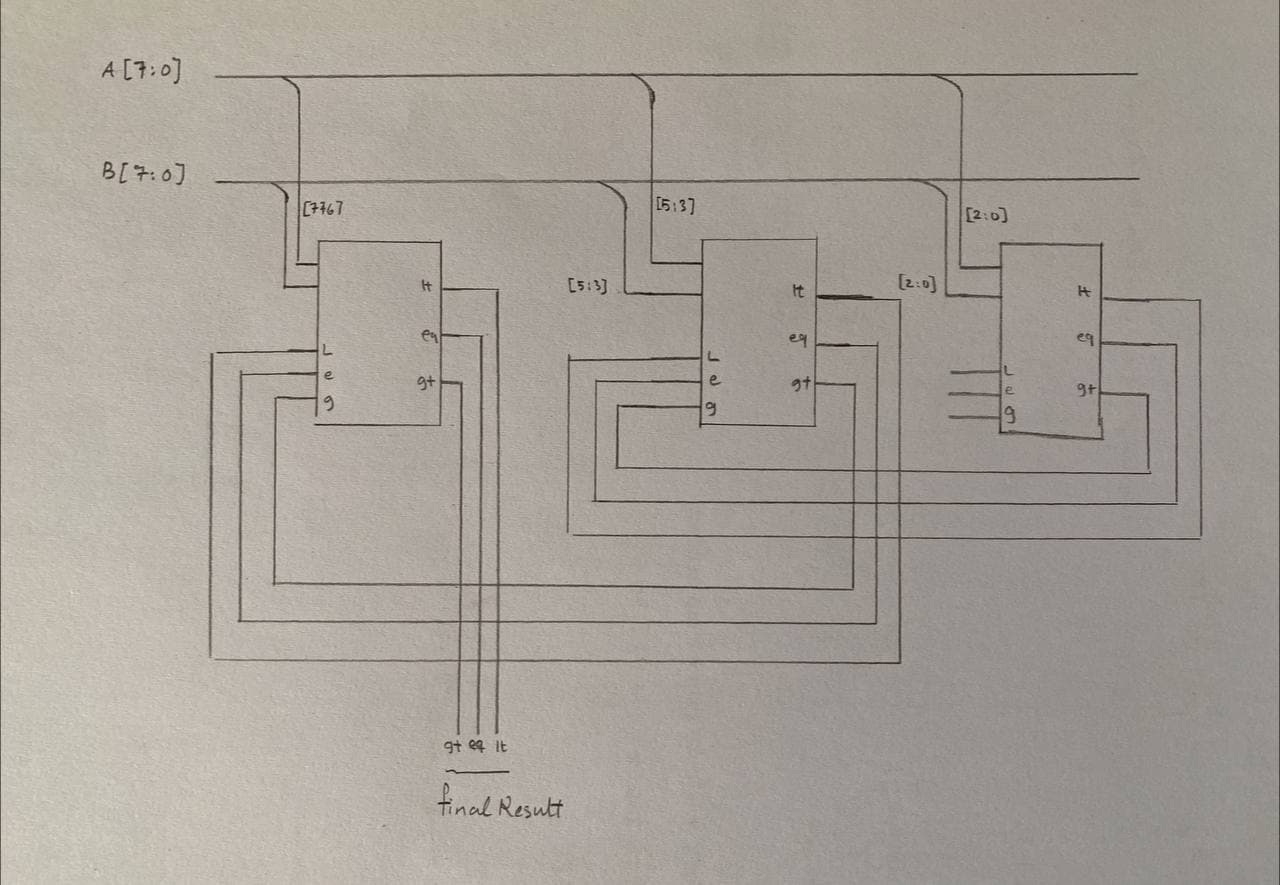 A[7:0]
B[7:0]
[776]
[5:3]
[2:0]
[5:3]
[2:0]
lt
eq
gt
L
e
g
lt
eq
gt
L
e
g
lt
eq
gt
L
e
g
gt eq lt
final Result